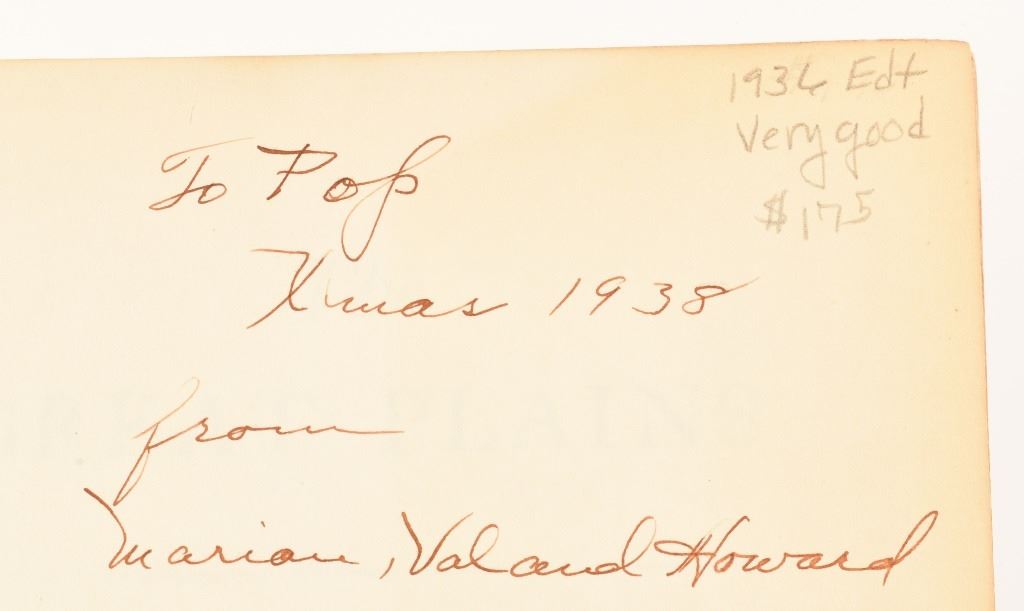 1936 Edt
Very good
$175
To Pop
Xmas 1938
from
Marian, Val and Howard